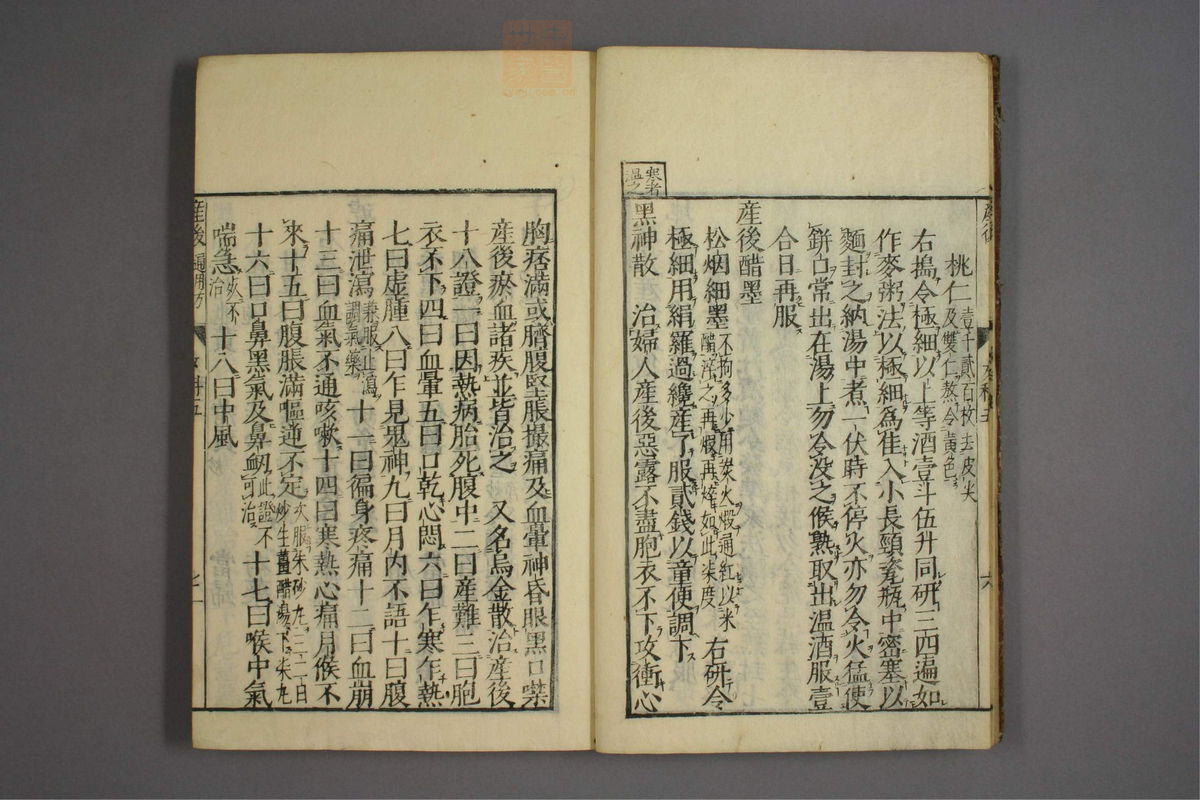 寒者
温之
桃仁壹千貳百枚去皮尖及雙仁熬令黃色
右搗令極細以上等酒壹斗伍升同研三四遍如
作麥粥法以極細爲佳入小長頸瓷瓶中密塞以
麵封之納湯中煮一伏時不停火亦勿令火猛使
餅口常出在湯上勿令没之候熟取出温酒服壹
合日再服
産後醋墨
松烟細墨不拘多少用炭火煅通紅以米醋淬之再煅再淬如此柒度 右研令
極細用絹羅過纔産了服貳錢以童便調下
黑神散 治婦人産後惡露不盡胞衣不下攻衝心
胸痞滿或臍腹堅脹撮痛及血暈神昏眼黑口噤
産後瘀血諸疾並皆治之 又名烏金散治産後
十八證一曰因熱病胎死腹中二曰産難三曰胞
衣不下四曰血暈五曰口乾心悶六曰乍寒乍熱
七曰虚腫八曰乍見鬼神九曰月内不語十曰腹
痛泄瀉兼服止瀉調氣藥十一曰徧身疼痛十二曰血崩
十三曰血氣不通咳嗽十四曰寒熱心痛月候不
來十五曰腹脹滿嘔逆不定
十六曰口鼻黑氣及鼻衂此證不可治 十七曰喉中氣
喘急 十八曰中風
産後 通用方